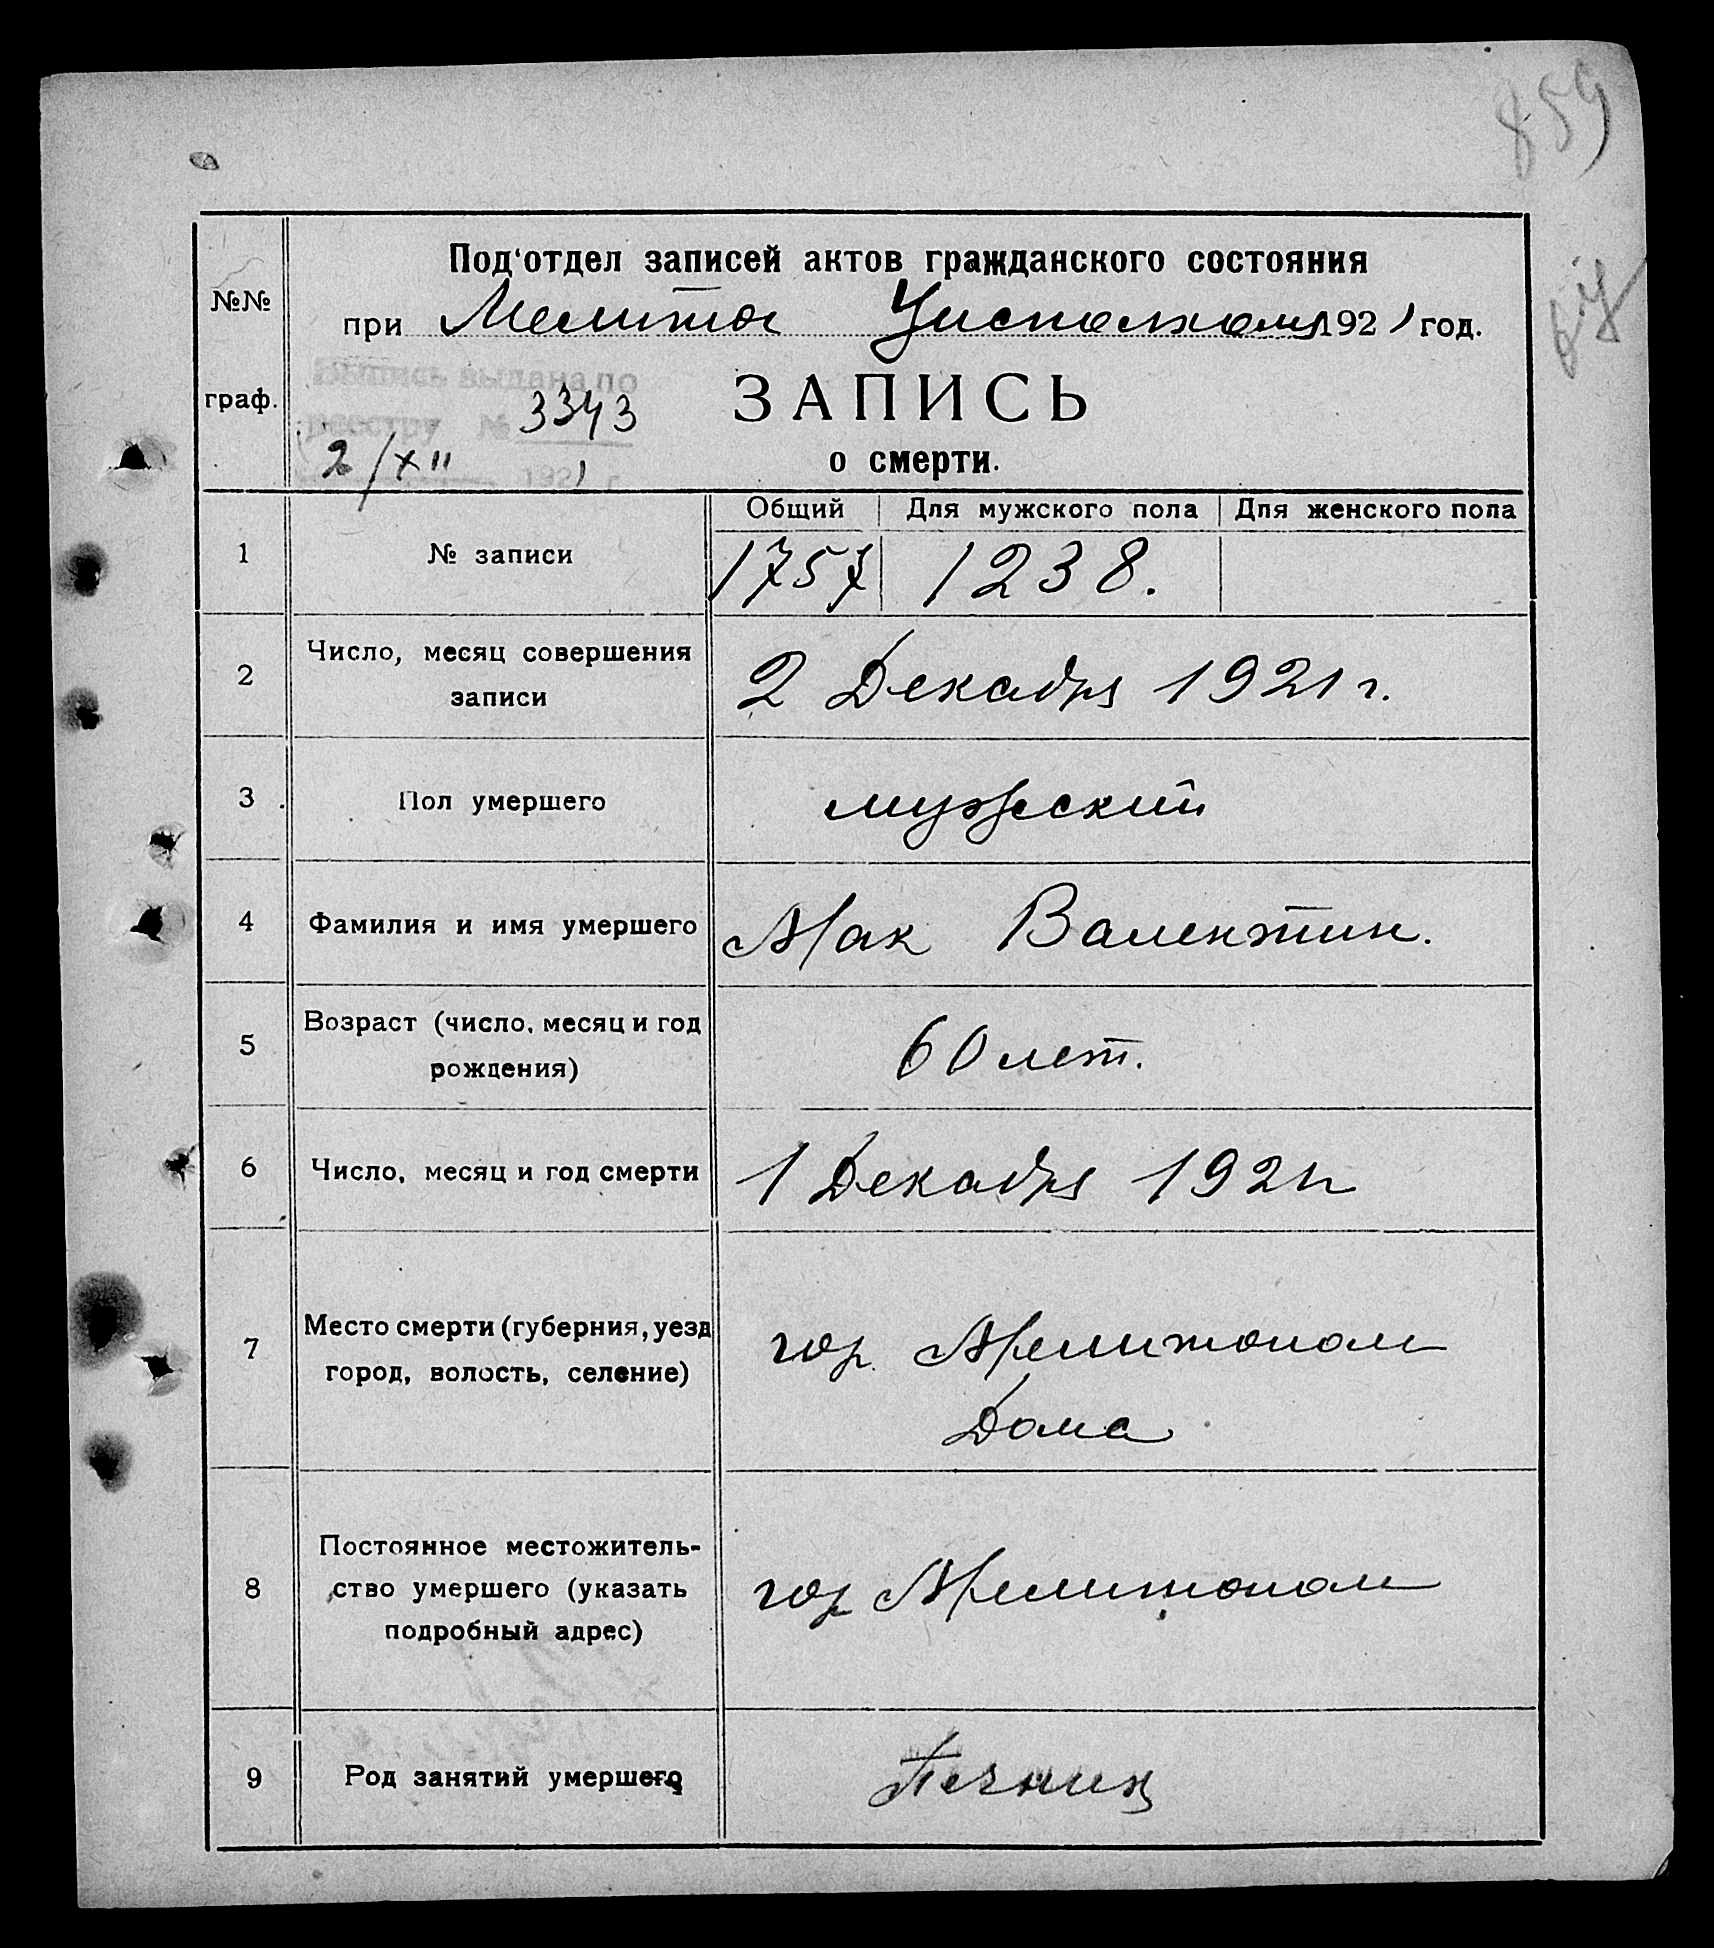 859
Под'отдел записей актов гражданского состояния
№№
при Мелитоп Уисполкоме 1921 год.
Выпись выдана по
реестру № 3343
2/XII 1921 г.
граф.
ЗАПИСЬ
о смерти.
Общий Для мужского пола Для женского пола
1 № записи 1757 1238.
2 Число, месяц совершения
записи
2 Декабря 1921 г.
3 Пол умершего мужеский
4 Фамилия и имя умершего Мак Валентин.
5 Возраст (число, месяц и год
рождения)
60 лет.
6 Число, месяц и год смерти 1 Декабря 1921 г
7 Место смерти (губерния, уезд
город, волость, селение)
гор. Мелитополь
Дома
8 Постоянное местожитель-
ство умершего (указать
подробный адрес)
гор Мелитополь
9 Род занятий умершего Печник